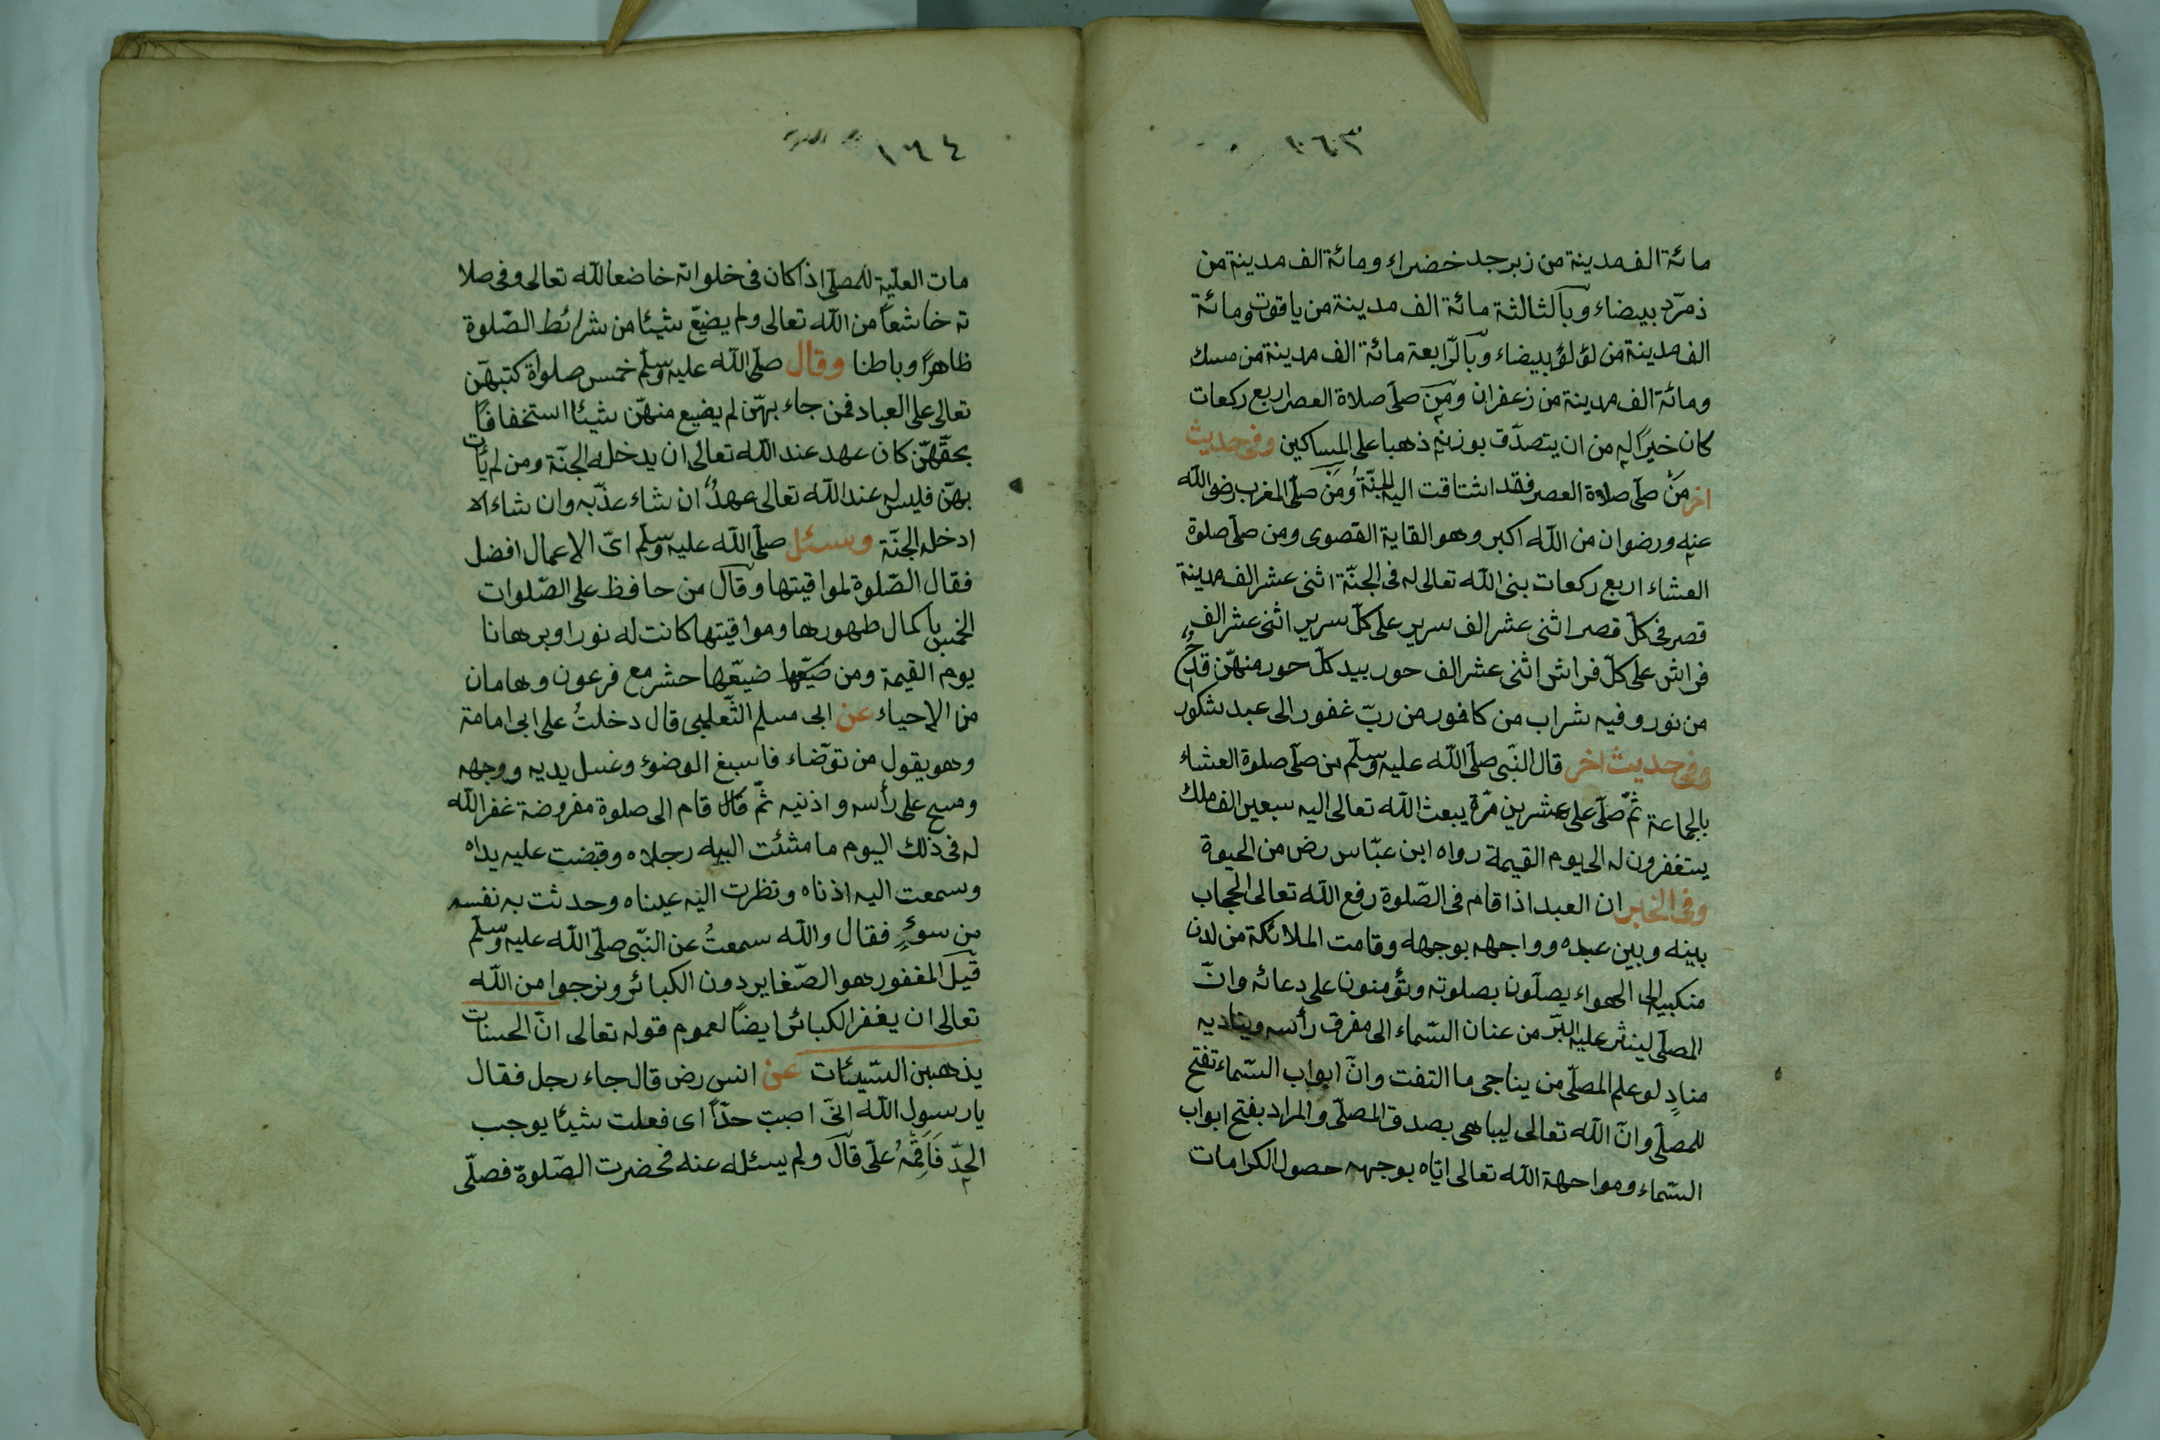 ١٦٣
مائة الف مدينة من زبرجد خضراء ومائة الف مدينة من
ذمرّد بيضاء وبالثالثة مائة الف مدينة من ياقوت ومائة
الف مدينة من لؤلؤ بيضاء وبالرّابعة مائة الف مدينة من مسك
ومائة الف مدينة من زعفران ومن صلّى صلاة العصر اربع ركعات
كان خيرًا له من ان يتصدّق بوزنه ذهبا على المساكين وفى حديث
اخر مَنْ صلّى صلاة العصر فقد اشتاقت اليه الجنّةُ ومَن صلّى المغرب رضى اللّه
عنه ورضوان من اللّه اكبر وهو القاية القصوى ومن صلّى صلوة
العشاء اربع ركعات بنى اللّه تعالى له فى الجنّة اثنى عشر الف مدينة
قصر فى كلّ قصر اثنى عشر الف سرير على كلّ سرير اثنى عشر الف
فراش على كلّ فراش اثنى عشر الف حور بيد كلّ حور منهنّ قدحٌ
من نور وفيه شراب من كافور من ربّ غفور الى عبد شكور
وفى حديث اخر قال النّبى صلّى اللّه عليه وسلّم من صلّى صلوة العشاء
بالجماعة ثمّ صلّى علىّ عشرين مرّة يبعث اللّه تعالى اليه سبعين الف ملك
يستغفرون له الى يوم القيمة رواه ابن عبّاس رض من الحيوة
وفى الخبر ان العبد اذا قام فى الصّلوة رفع اللّه تعالى الحجاب
بينه وبين عبده وواجهه بوجهه وقامت الملائكة من لدن
منكبيه الى الهواء يصلّون بصلوته ويؤمنون على دعائه وانّ
المصلّى لينثر عليه البّر من عنان السّماء الى مفرق رأسه ويناديه
منادٍ لو علم المصلّى من يناجى ما التفت وانّ ابواب السّماء تفتح
للمصلّى وانّ اللّه تعالى ليباهى بصدق المصلّى والمراد بفتح ابواب
السّماء ومواجهة اللّه تعالى ايّاه بوجهه حصول الكرامات
١٦٤
مات العليّة للمصلّى اذا كان فى خلواته خاضعا للّه تعالى وفى صلا
ته خاشعاً من اللّه تعالى ولم يضيّع شيئا من شرائط الصّلوة
ظاهرًا وباطنا وقال صلّى اللّه عليه وسلّم خمس صلواة كتبهنّ
تعالى على العباد فمن جاء بهنّ لم يضيع منهنّ شيئا استخفافًا
بحقّهنّ كان عهد عند اللّه تعالى ان يدخله الجنّة ومن لم يأت
بهنّ فليس له عند اللّه تعالى عهدٌ ان شاء عذّبه وان شاء الا
ادخله الجنّة وسئل صلّى اللّه عليه وسلّم اىّ الاعمال افضل
فقال الصّلوة لمواقيتها وقال من حافظ على الصّلوات
الخمس باكمال طهورها ومواقيتها كانت له نورا وبرهانا
يوم القيمة ومن ضيّعها ضيّعها حشر مع فرعون وهامان
من الاحياء عن ابى مسلم الثّعلبى قال دخلتُ على ابى امامة
وهو يقول من توّضاء فاسبغ الوضوء وغسل يديه ووجهه
ومسح على رأسه واذنيه ثمّ قال قام الى صلوة مفروضة غفر اللّه
له فى ذلك اليوم ما مشئت اليه رجلاه وقبضت عليه يداه
وسمعت اليه اذناه ونظرت اليه عيناه وحدثت به نفسه
من سوءٍ فقال واللّه سمعتُ عن النّبى صلّى اللّه عليه وسلّم
قيل المغفور هو الصّغاير دون الكبائر ونرجوا من اللّه
تعالى ان يغفر الكبائر ايضاً لعموم قوله تعالى انّ الحسنات
يذهبن السّيئات عن انس رض قال جاء رجل فقال
يا رسول اللّه انّى اصبت حدّاً اى فعلت شيئا يوجب
الحدّ فَاَقِمْهُ علىّ قال ولم يسئله عنه فحضرت الصّلوة فصلّى